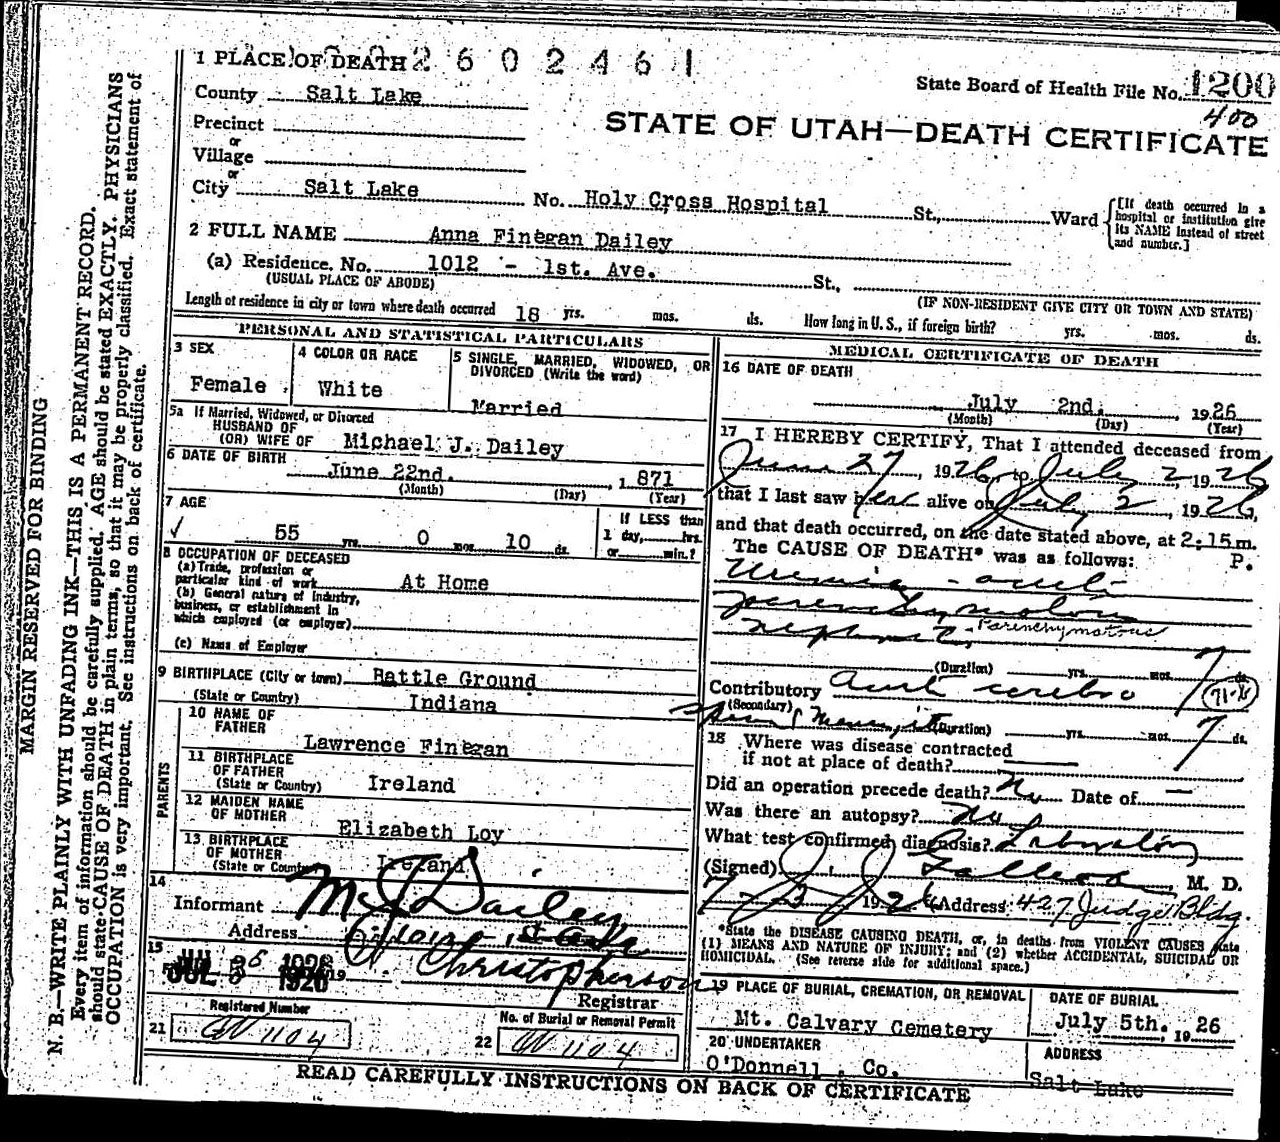 1 PLACE OF DEATH 2602461
State Board of Health File No. 1200
400
County Salt Lake
STATE OF UTAH—DEATH CERTIFICATE
Precinct
or
Village
or
City Salt Lake No. Holy Cross Hospital St., Ward
[If death occurred in a hospital or institution give its NAME instead of street and number.]
2 FULL NAME Anna Finegan Dailey
(a) Residence. No. 1012 - 1st. Ave. St.,
(USUAL PLACE OF ABODE) (IF NON-RESIDENT GIVE CITY OR TOWN AND STATE)
Length of residence in city or town where death occurred 18 yrs. mos. ds. How long in U. S., if foreign birth? yrs. mos. ds.
PERSONAL AND STATISTICAL PARTICULARS
3 SEX
Female
4 COLOR OR RACE
White
5 SINGLE, MARRIED, WIDOWED, OR DIVORCED (Write the word)
Married
5a If Married, Widowed, or Divorced
HUSBAND OF
(OR) WIFE OF Michael J. Dailey
6 DATE OF BIRTH
June 22nd. , 1871
(Month) (Day) (Year)
7 AGE
55 yrs. 0 mos. 10 ds.
If LESS than
1 day, hrs.
or min.?
8 OCCUPATION OF DECEASED
(a) Trade, profession or
particular kind of work At Home
(b) General nature of Industry,
business, or establishment in
which employed (or employer)
(c) Name of Employer
9 BIRTHPLACE (City or town) Battle Ground
(State or Country) Indiana
PARENTS
10 NAME OF
FATHER
Lawrence Finegan
11 BIRTHPLACE
OF FATHER
(State or Country) Ireland
12 MAIDEN NAME
OF MOTHER
Elizabeth Loy
13 BIRTHPLACE
OF MOTHER
(State or Country Ireland
14
Informant M J Dailey
Address
15 JUL 6 1926
Christopherson
Registrar
Registered Number
21 1104
No. of Burial or Removal Permit
22 1104
MEDICAL CERTIFICATE OF DEATH
16 DATE OF DEATH
July 2nd. , 1926
(Month) (Day) (Year)
17 I HEREBY CERTIFY, That I attended deceased from
June 27, 1926, to July 2 1926
that I last saw her alive on July 2, 1926,
and that death occurred, on the date stated above, at 2:15 m.
The CAUSE OF DEATH* was as follows: P.
Uremia - acute
parenchymatous
nephritis Parenchymatous
(Duration) yrs. mos. 7 ds.
Contributory acute cerebro
(Secondary)
spinal meningitis (Duration) yrs. mos. 7 ds.
18 Where was disease contracted
if not at place of death?
Did an operation precede death? No Date of —
Was there an autopsy? No
What test confirmed diagnosis? Laboratory
(Signed) M. D.
7-3 1926 (Address) 427 Judge Bldg.
*State the DISEASE CAUSING DEATH, or, in deaths from VIOLENT CAUSES state
(1) MEANS AND NATURE OF INJURY; and (2) whether ACCIDENTAL, SUICIDAL OR
HOMICIDAL. (See reverse side for additional space.)
19 PLACE OF BURIAL, CREMATION, OR REMOVAL
Mt. Calvary Cemetery
DATE OF BURIAL
July 5th. , 1926
20 UNDERTAKER
O'Donnell , Co.
ADDRESS
Salt Lake
READ CAREFULLY INSTRUCTIONS ON BACK OF CERTIFICATE
MARGIN RESERVED FOR BINDING
N. B.—WRITE PLAINLY WITH UNFADING INK—THIS IS A PERMANENT RECORD.
Every item of information should be carefully supplied. AGE should be stated EXACTLY. PHYSICIANS
should state CAUSE OF DEATH in plain terms, so that it may be properly classified. Exact statement of
OCCUPATION is very important. See instructions on back of certificate.